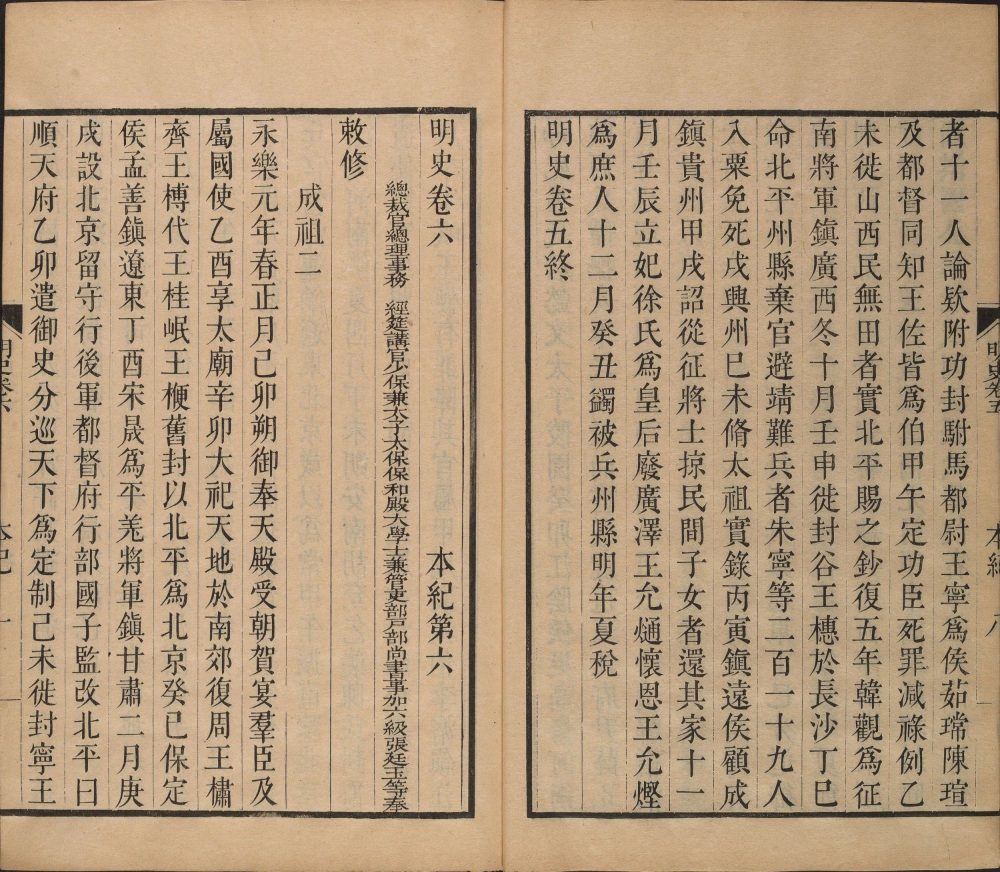 者十一人論欵附功封駙馬都尉王寧爲侯茹瑺陳瑄
及都督同知王佐皆爲伯甲午定功臣死罪減祿例乙
未徙山西民無田者實北平賜之鈔復五年韓觀爲征
南將軍鎮廣西冬十月壬申徙封谷王橞於長沙丁巳
命北平州縣棄官避靖難兵者朱寧等二百一十九人
入粟免死戍興州巳未脩太祖實錄丙寅鎮遠侯顧成
鎮貴州甲戌詔從征將士掠民間子女者還其家十一
月壬辰立妃徐氏爲皇后廢廣澤王允熥懷恩王允熞
爲庶人十二月癸丑蠲被兵州縣明年夏稅
明史卷五終
明史卷五
本紀
八
明史卷六 本紀第六
總裁官總理事務 經筵講官少保兼太子太保保和殿大學士兼管吏部戸部尚書事加六級張廷玉等奉
敕修
成祖二
永樂元年春正月己卯朔御奉天殿受朝賀宴羣臣及
屬國使乙酉享太廟辛卯大祀天地於南郊復周王橚
齊王榑代王桂岷王楩舊封以北平爲北京癸巳保定
侯孟善鎮遼東丁酉宋晟爲平羌將軍鎮甘肅二月庚
戌設北京留守行後軍都督府行部國子監改北平曰
順天府乙卯遣御史分巡天下爲定制己未徙封寧王
明史卷六
本紀
一